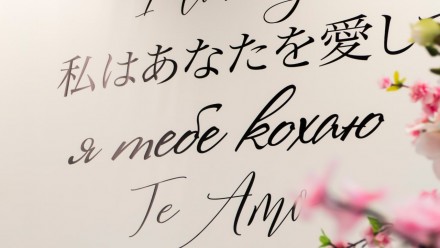 私はあなたを愛し
я тебе кохаю
Te Amo